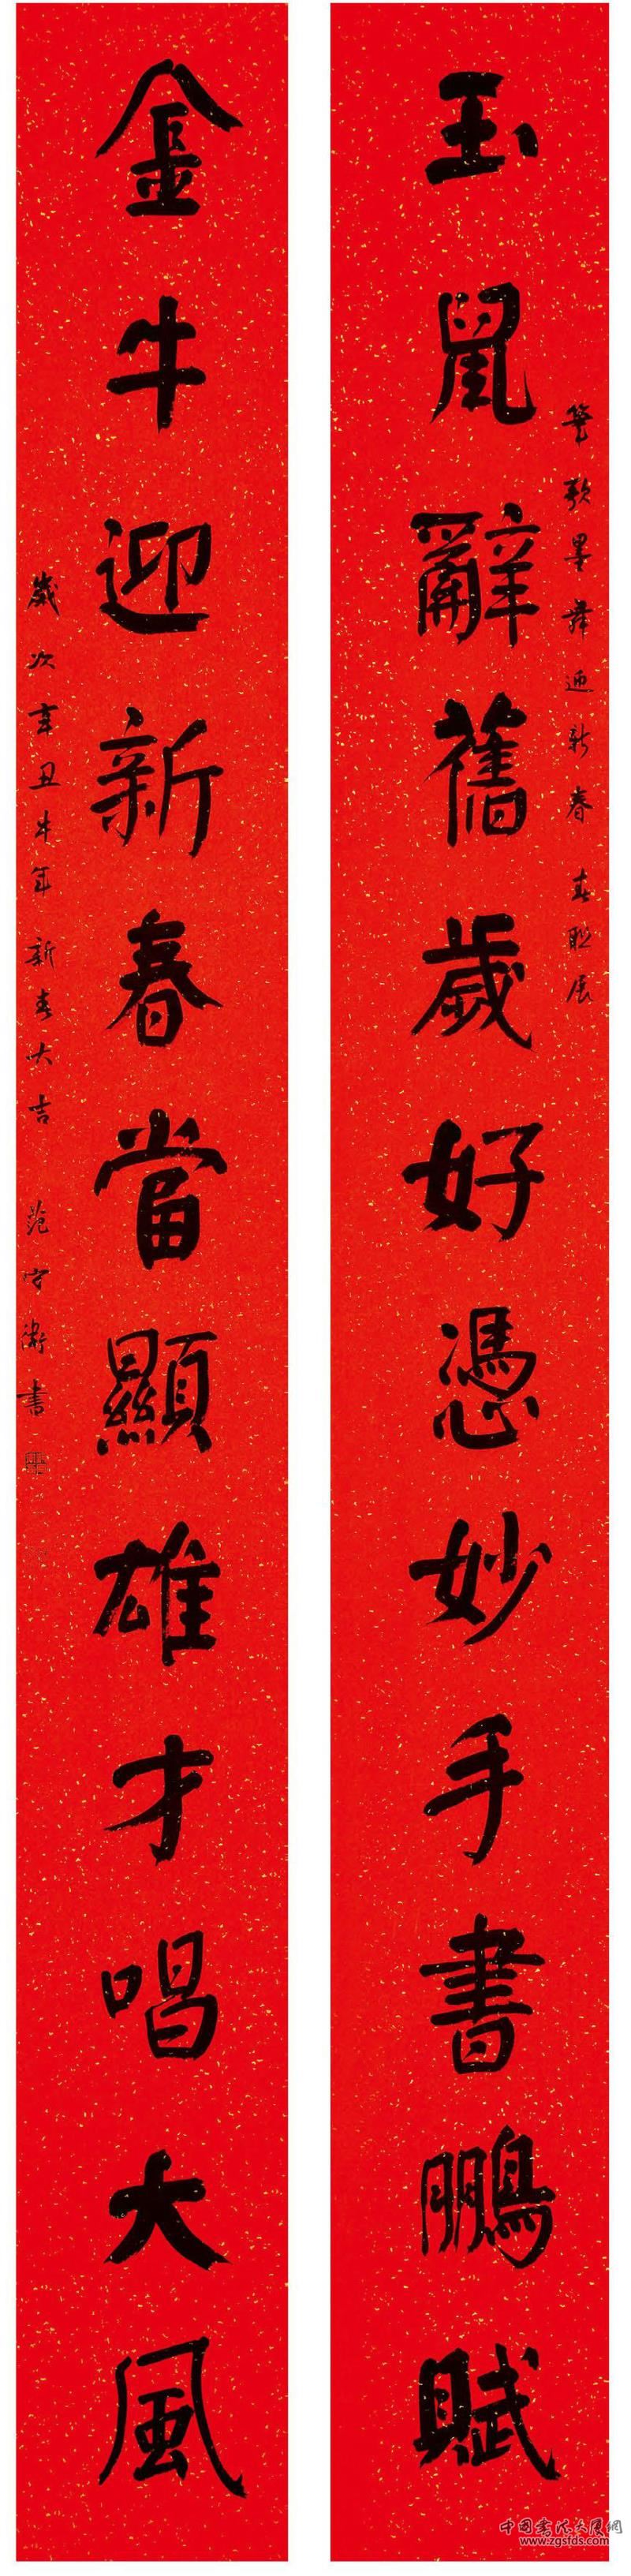 玉鼠辭舊歲好憑妙手書鵬賦
筆歌墨舞迎新春 春聯展
金牛迎新春當顯雄才唱大風
歲次辛丑牛年新春大吉 范守衛書
中国书法大厦网
www.zgsfds.com